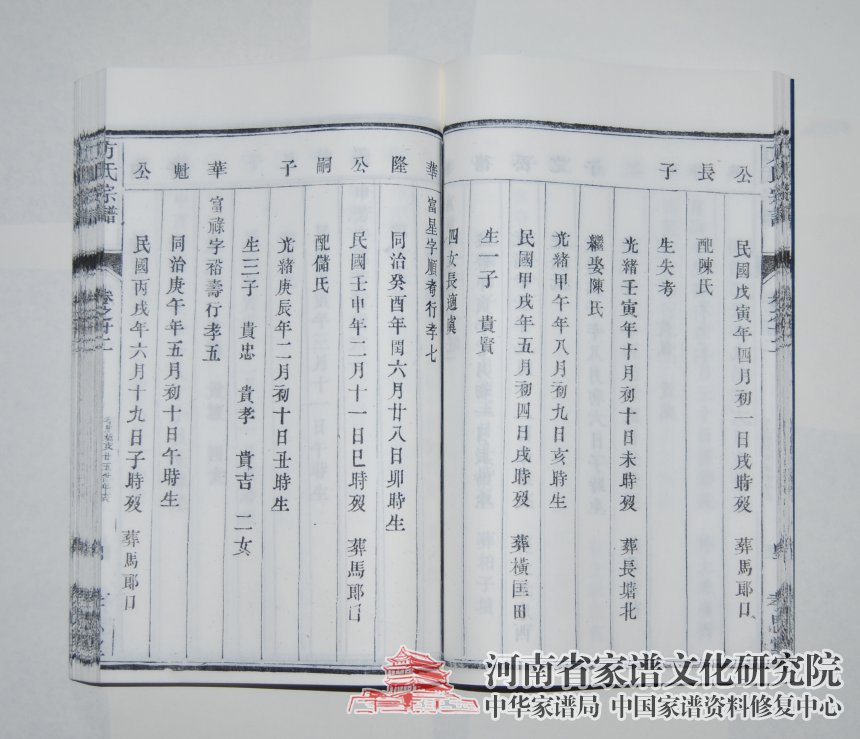 公長子
民國戊寅年四月初一日戌時歿 葬馬郎口
配陳氏
生失考
光緒壬寅年十月初十日未時歿 葬長塘北
繼娶陳氏
光緒甲午年八月初九日亥時生
民國甲戌年五月初四日戌時歿 葬橫匡田
生一子 貴賓
四女長適虞
華隆公嗣子華魁公
富星字順壽行孝七
同治癸酉年閏六月廿八日卯時生
民國壬申年二月十一日巳時歿 葬馬郎口
配儲氏
光緒庚辰年二月初十日丑時生
生三子 貴忠 貴孝 貴吉 二女
富祿字裕壽行孝五
同治庚午年五月初十日午時生
民國丙戌年六月十九日子時歿 葬馬郎口
方氏宗譜
河南省家谱文化研究院
中华家谱局 中国家谱资料修复中心